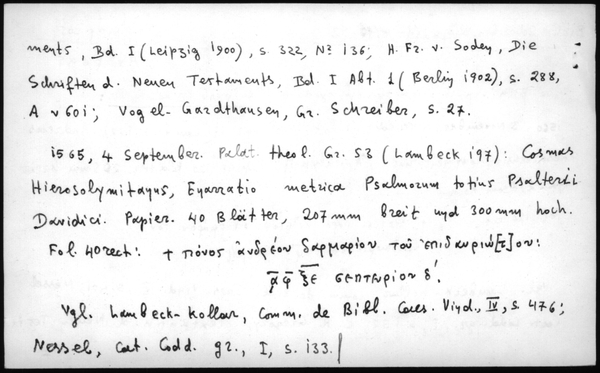 ments, Bd. I (Leipzig 1900), S. 322, Nº 136; H. Fr. v. Soden, Die
Schriften d. Neuen Testaments, Bd. I Abt. 1 (Berlin 1902), S. 288,
A v 601; Vogel-Gardthausen, Gr. Schreiber, S. 27.
1565, 4 September. Palat. theol. Gr. 53 (Lambeck 197): Cosmas
Hierosolymitanus, Enarratio metrica Psalmorum totius Psalterii
Davidici. Papier. 40 Blätter, 207 mm breit und 300 mm hoch.
Fol. 40 rect: + πόνος ἀνδρέου δαρμαρίου τοῦ ἐπιδαυριώ[τ]ου:
α̅φ̅ξ̅ε̅ σεπτευρίου δ´.
Vgl. Lambeck-Kollar, Comm. de Bibl. Caes. Vind., IV, S. 476;
Nessel, Cat. Codd. gr., I, S. 133.